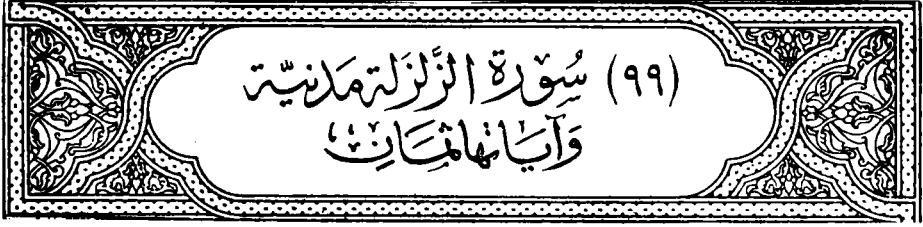 (٩٩) سُورَة الزَّلزَلة مَدَنِيَّة
وَآيَاتهَا ثَمَانِ